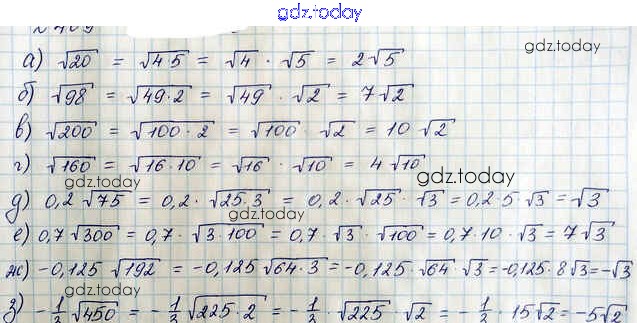 gdz.today
gdz.today
а) √20 = √4·5 = √4 · √5 = 2√5
б) √98 = √49·2 = √49 · √2 = 7√2
gdz.today
в) √200 = √100·2 = √100 · √2 = 10·√2
г) √160 = √16·10 = √16 · √10 = 4√10
gdz.today gdz.today
д) 0,2·√75 = 0,2·√25·3 = 0,2·√25 · √3 = 0,2·5·√3 = √3
gdz.today
е) 0,7√300 = 0,7·√3·100 = 0,7·√3 · √100 = 0,7·10·√3 = 7√3
ж) -0,125√192 = -0,125√64·3 = -0,125·√64·√3 = -0,125·8√3 = -√3
gdz.today
з) -1/3√450 = -1/3√225·2 = -1/3·√225 · √2 = -1/3·15√2 = -5√2
gdz.today